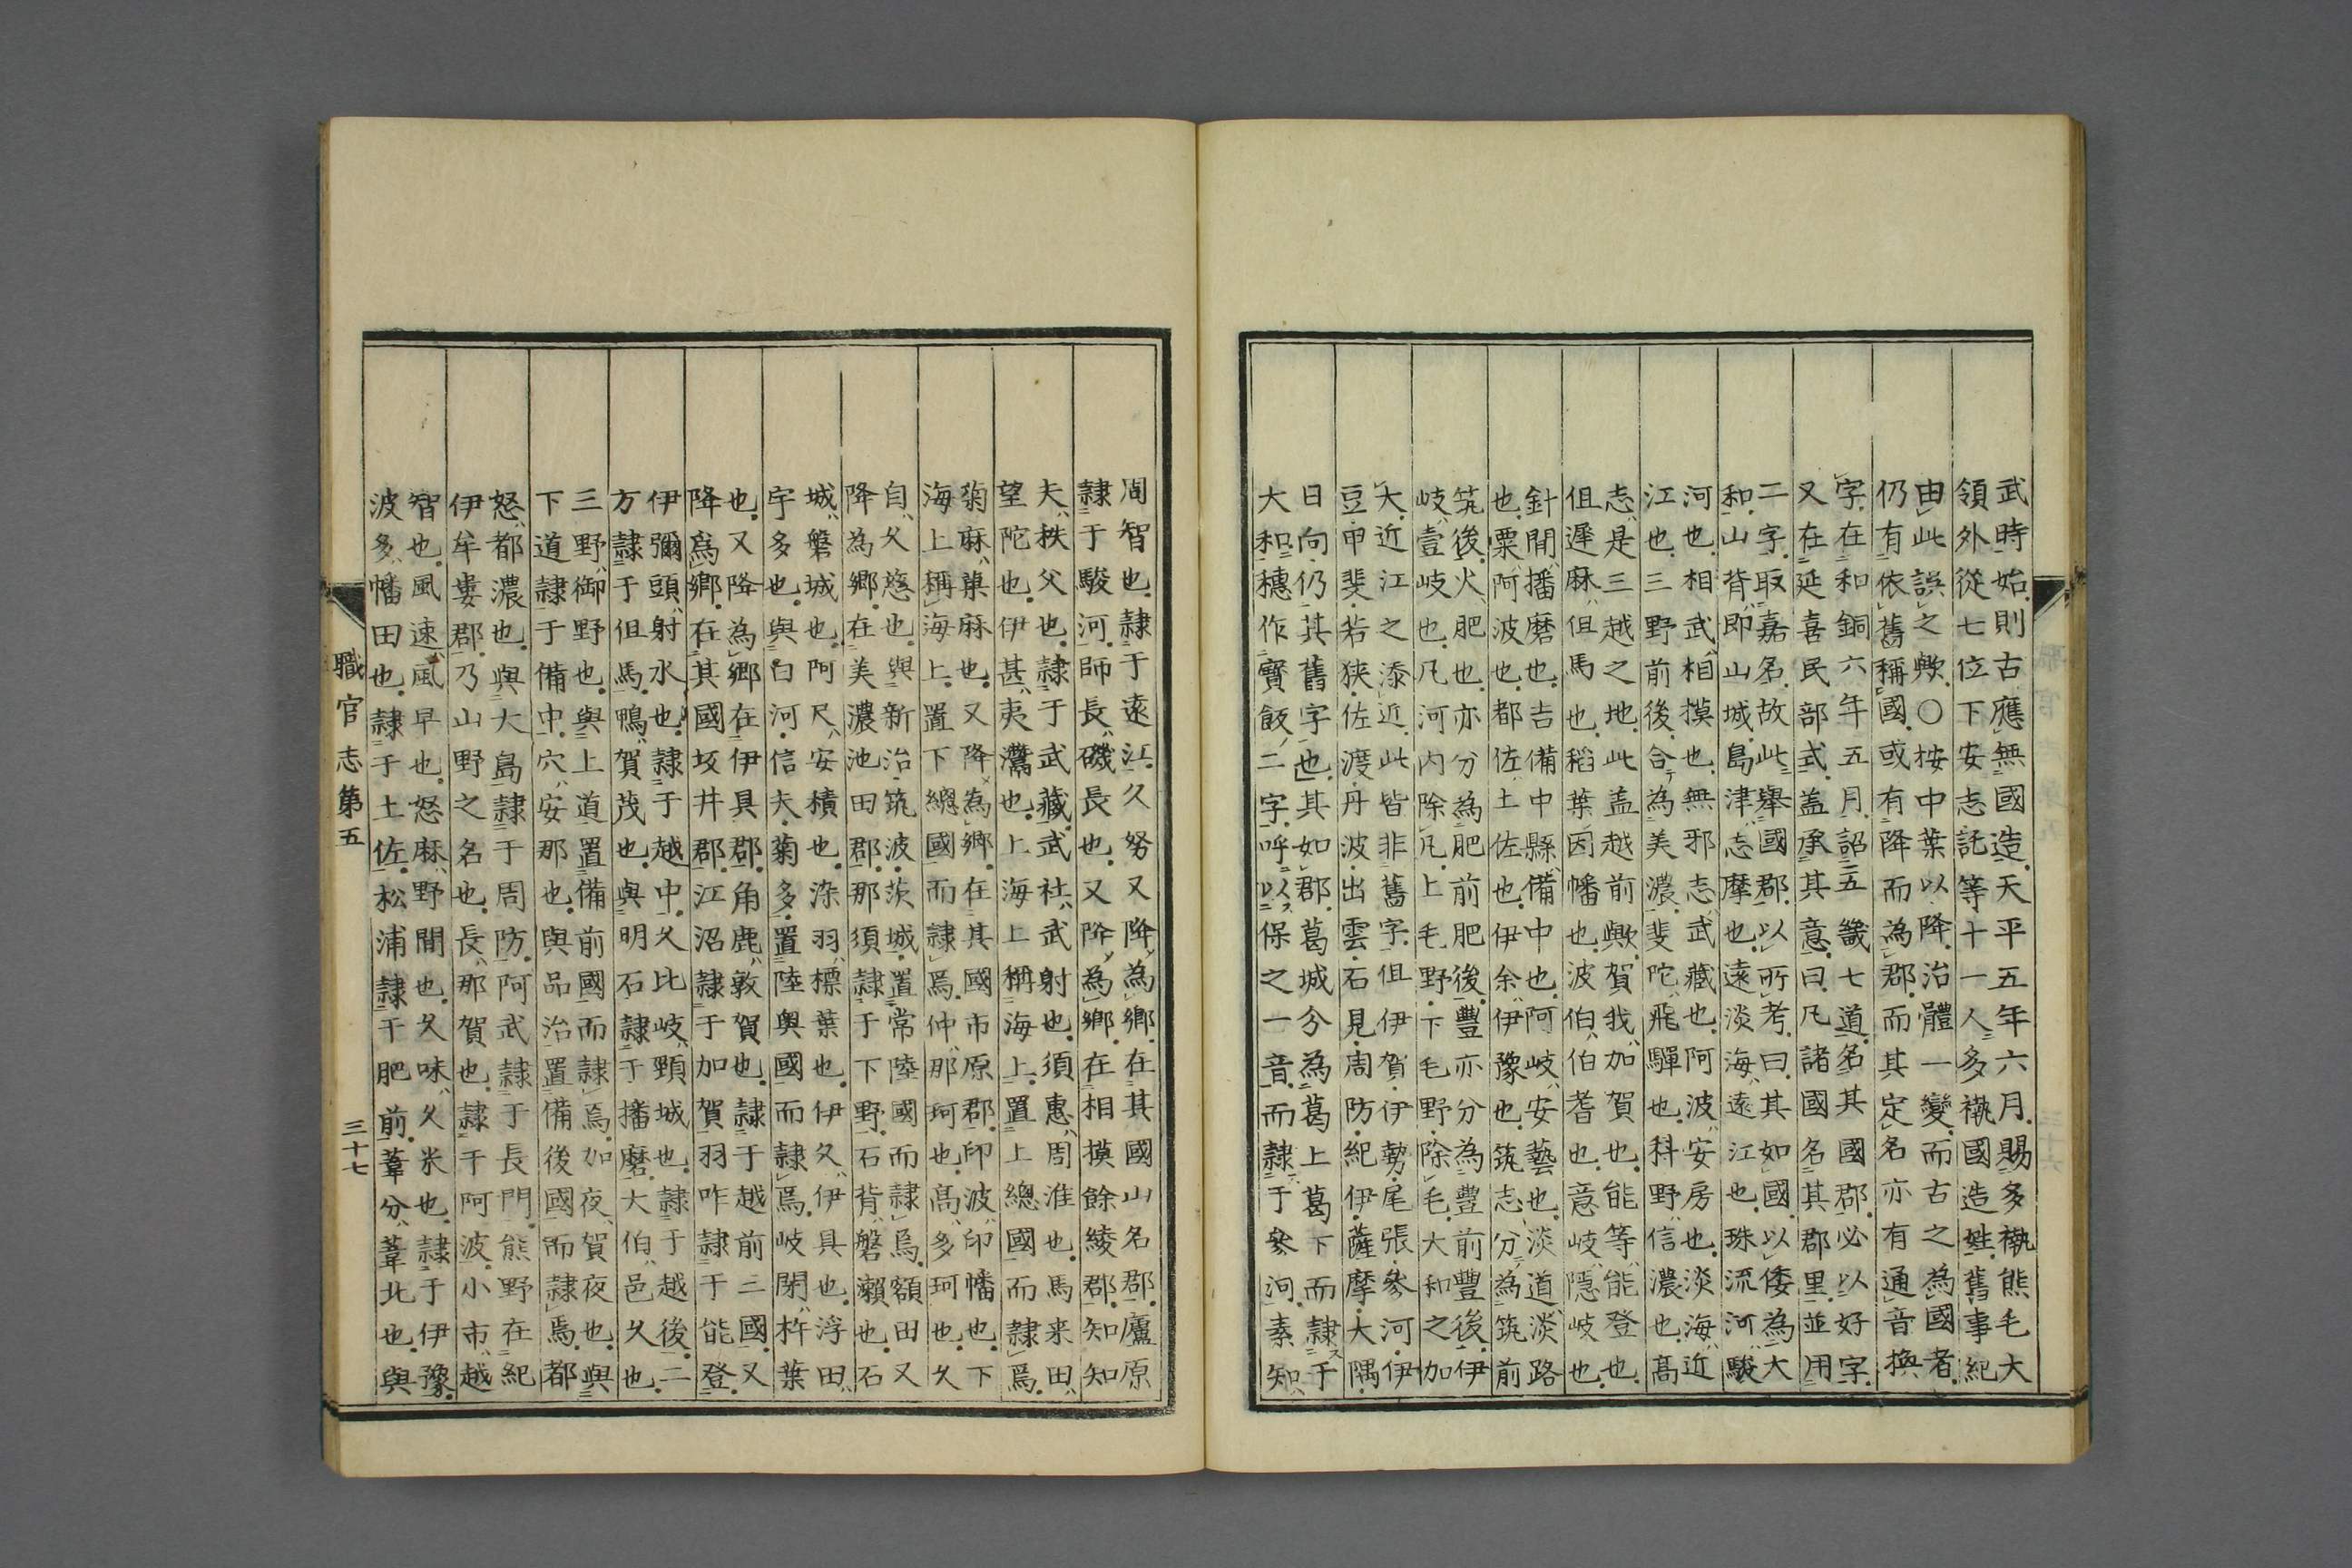 武時始則古應無國造天平五年六月賜多褹熊毛大
領外從七位下安志託等十一人多褹國造姓舊事紀
由此誤之歟○桉中葉以降治體一變而古之為國者
仍有依舊稱國或有降而為郡而其定名亦有通音換
字在和銅六年五月詔五畿七道名其國郡必以好字
又在延喜民部式盖承其意曰凡諸國名其郡里並用
二字取嘉名故此舉國郡以所考曰其如國以倭為大
和山背即山城島津志摩也遠淡海遠江也珠流河駿
河也相武相摸也無邪志武藏也阿波安房也淡海近
江也三野前後合為美濃斐陀飛驒也科野信濃也髙
志是三越之地此盖越前歟賀我加賀也能等能登也
但遲麻但馬也稻葉因幡也波伯伯耆也意岐隱岐也
針間播磨也吉備中縣備中也阿岐安藝也淡道淡路
也粟阿波也都佐土佐也伊余伊豫也筑志分為筑前
筑後火肥也亦分為肥前肥後豐亦分為豐前豐後伊
岐壹岐也凡河内除凡上毛野下毛野除毛大和之加
大近江之添近此皆非舊字但伊賀伊勢尾張參河伊
豆甲斐若狹佐渡丹波出雲石見周防紀伊薩摩大隅
日向仍其舊字也其如郡葛城分為葛上葛下而隷于
大和穗作寳飯二字呼以保之一音而隷于參河素知
周智也隷于遠江久努又降為鄉在其國山名郡廬原
隷于駿河師長磯長也又降為鄉在相摸餘綾郡知知
夫秩父也隷于武藏武社武射也須惠周淮也馬来田
望陀也伊甚夷灊也上海上稱海上置上總國而隷焉
菊麻菓麻也又降為鄉在其國市原郡印波印幡也下
海上稱海上置下總國而隷焉仲那珂也髙多珂也久
自久慈也與新治筑波茨城置常陸國而隷焉額田又
降為鄉在美濃池田郡那須隷于下野石背磐瀨也石
城磐城也阿尺安積也染羽標葉也伊久伊具也浮田
宇多也與白河信夫菊多置陸奥國而隷焉岐閇杵葉
也又降為鄉在伊具郡角鹿敦賀也隷于越前三國又
降為鄉在其國坂井郡江沼隷于加賀羽咋隷于能登
伊彌頭射水也隷于越中久比岐頸城也隷于越後二
方隷于但馬鴨賀茂也與明石隷于播磨大伯邑久也
三野御野也與上道置備前國而隷焉加夜賀夜也與
下道隷于備中穴安那也與品治置備後國而隷焉都
怒都濃也與大島隷于周防阿武隷于長門熊野在紀
伊牟婁郡乃山野之名也長那賀也隷于阿波小市越
智也風速風早也怒麻野間也久味久米也隷于伊豫
波多幡田也隷于土佐松浦隷于肥前葦分葦北也與
職官志第五
三十七